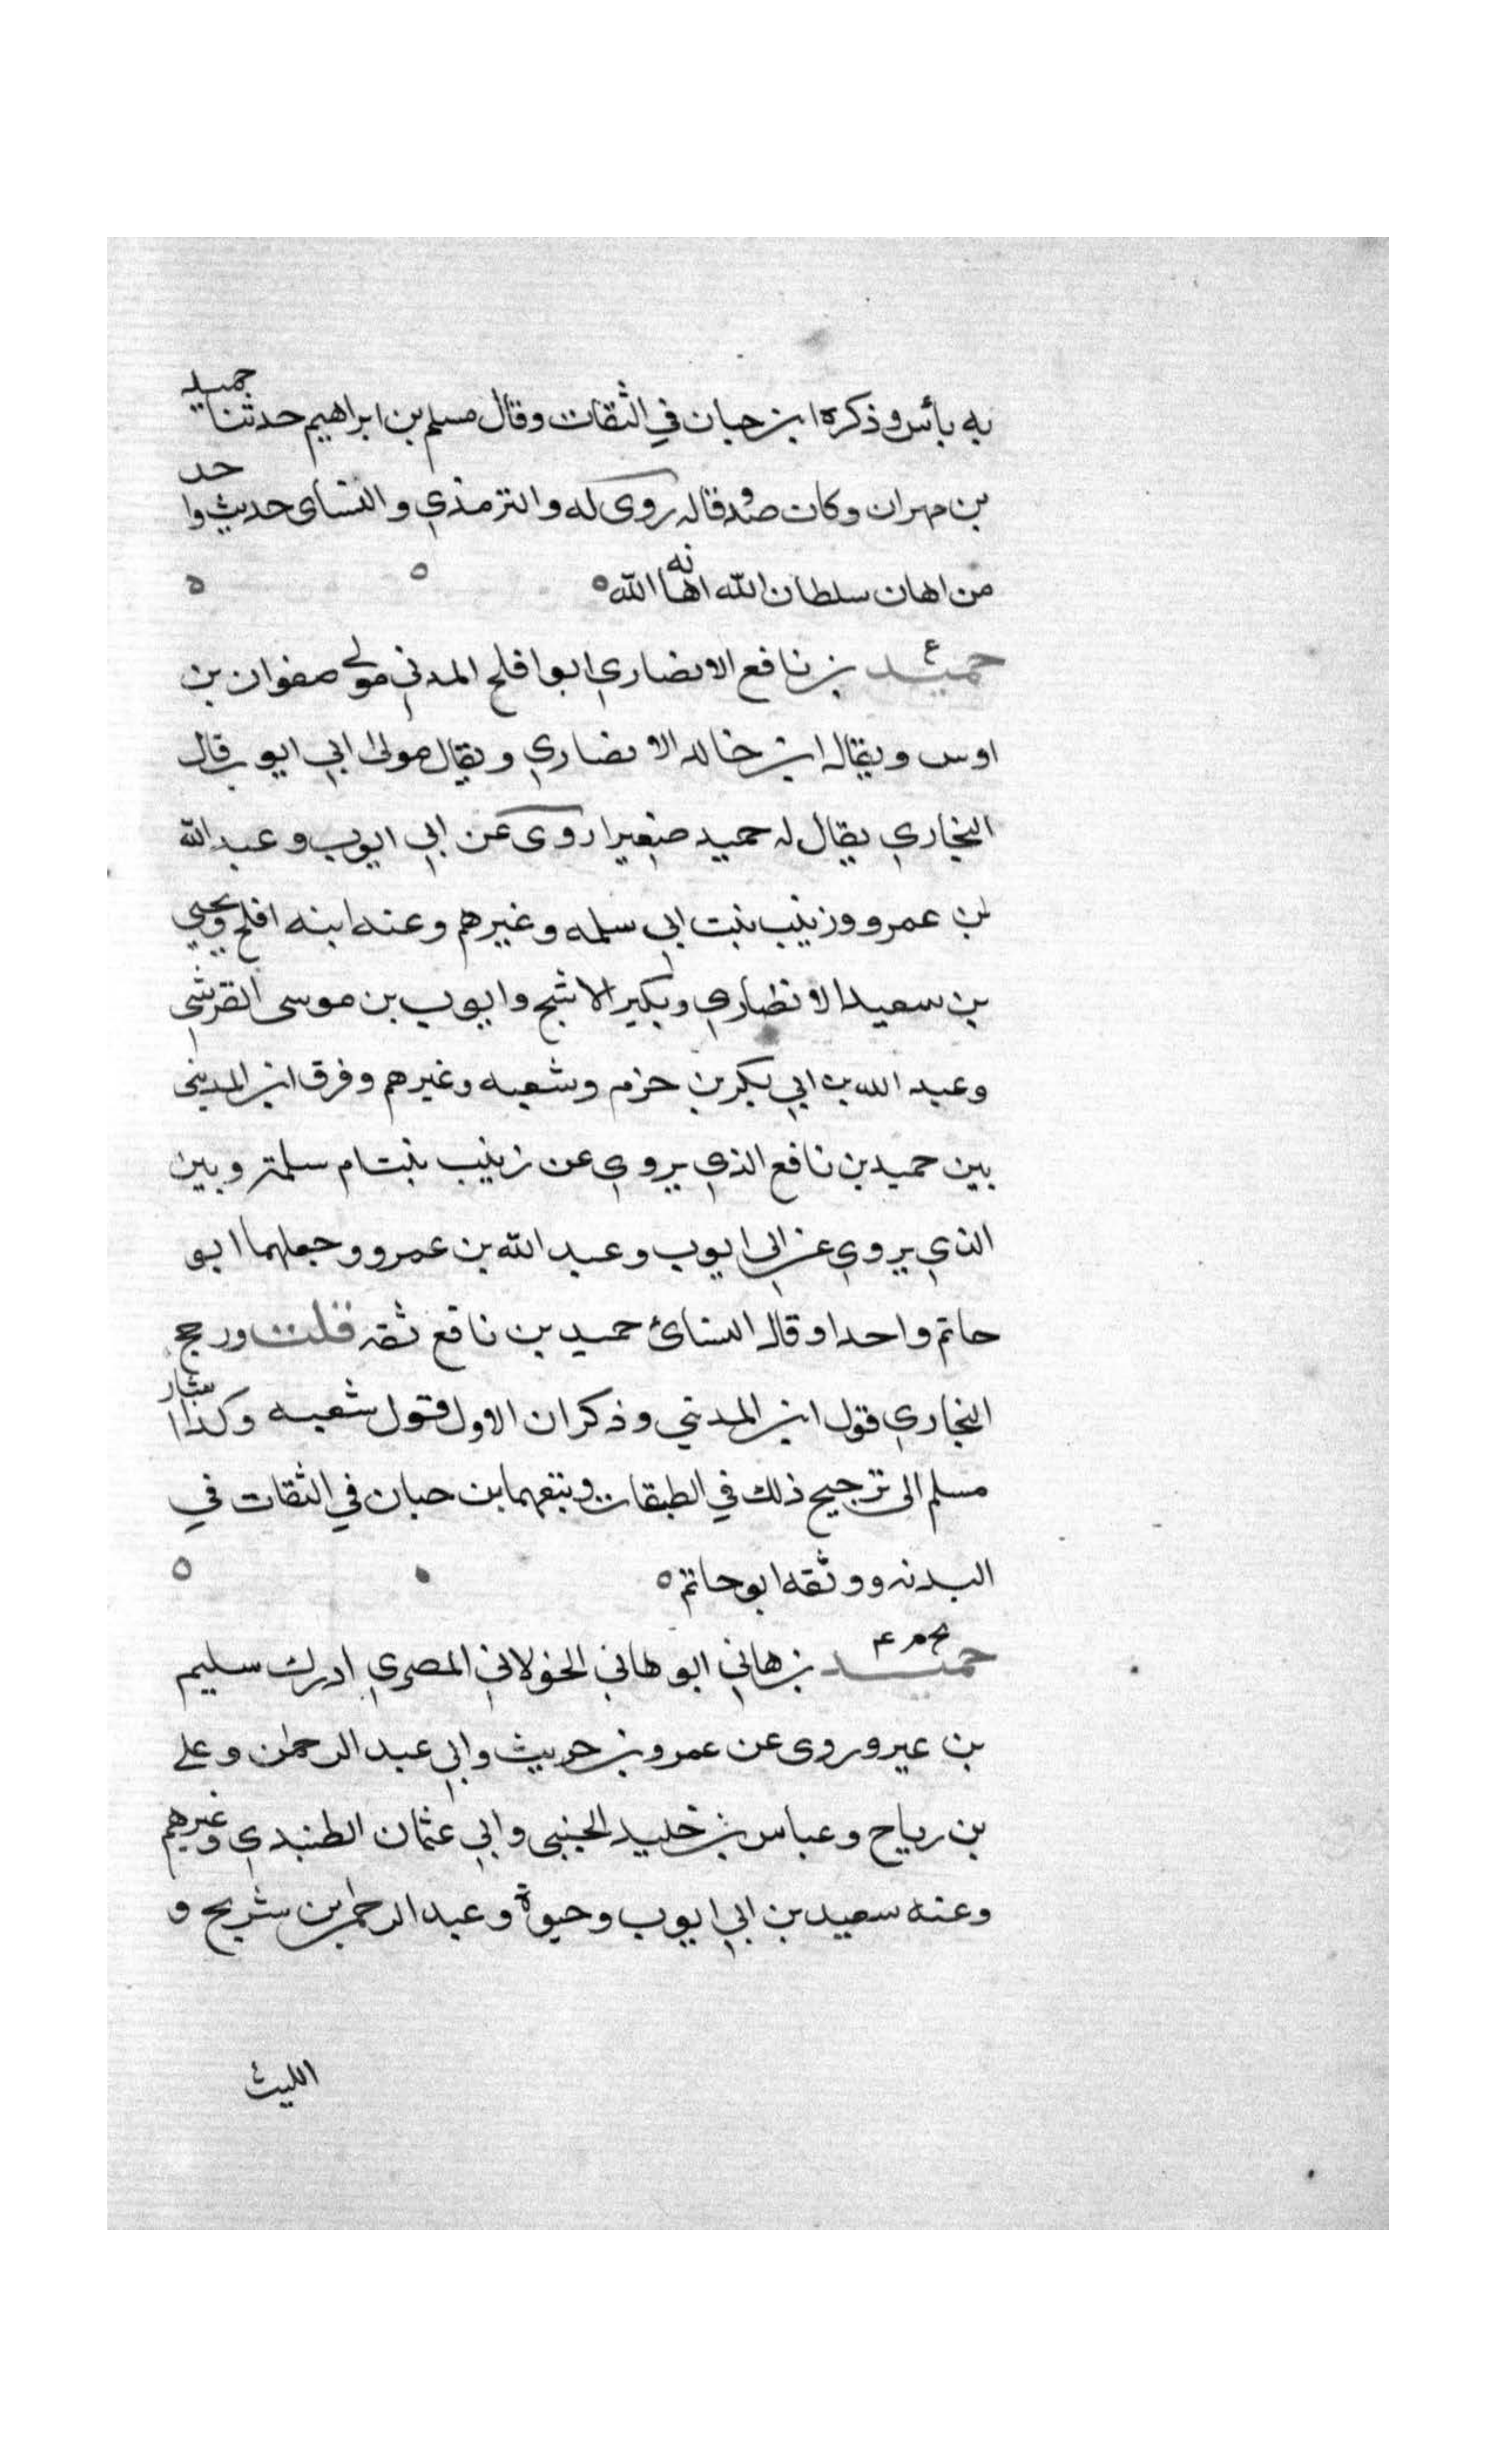 به بأس وذكره ابن حبان في الثقات وقال مسلم بن ابراهيم حدثنا حميد
بن مهران وكان صدوقا له روى له والترمذي والنسائ حديث واحد
من اهان سلطان الله اهانه الله ه
حميد ع بن نافع الانصاري ابو افلح المدني مولى صفوان بن
اوس ويقال ابن خالد الانصاري ويقال مولى ابي ايوب قال
البخاري يقال له حميد صغيرا روى عن ابي ايوب وعبد الله
بن عمرو وزينب بنت ابي سلمه وغيرهم وعنه ابنه افلح ويحيي
بن سعيد الانصاري وبكير الاشج وايوب بن موسى القرشي
وعبد الله بن ابي بكر بن حزم وشعبه وغيرهم وفرق ابن المديني
بين حميد بن نافع الذي يروي عن زينب بنت ام سلمة وبين
الذي يروي عن ابي ايوب وعبد الله بن عمرو وجعلهما ابو
حاتم واحدا وقال النسائ حميد بن نافع ثقه قلت ورجح
البخاري قول ابن المديني وذكر ان الاول قول شعبه وكذا اشار
مسلم الى ترجيح ذلك في الطبقات وتبعهما ابن حبان في الثقات في
ووثقه ابو حاتم ه
حميد بخ م ع بن هاني ابو هاني الخولاني المصري ادرك سليم
بن عير وروى عن عمرو بن حريث وابي عبد الرحمن وعلي
بن رباح وعباس بن خليد الحنبى وابي عثمان الطنبدي وغيرهم
وعنه سعيد بن ابي ايوب وحيوة وعبد الرحمن بن شريح و
الليث